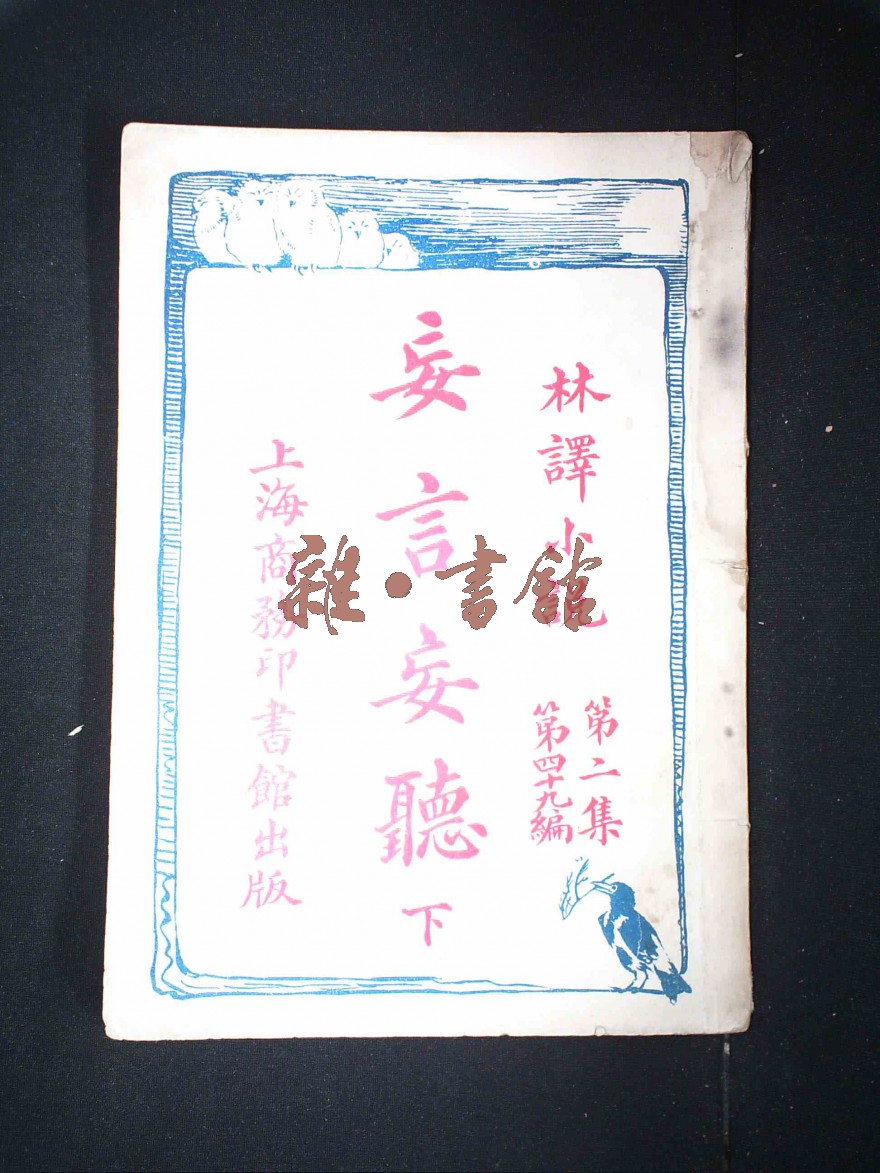 林譯小說
第二集
第四十九編
妄言妄聽下
上海商務印書館出版
雜·書館